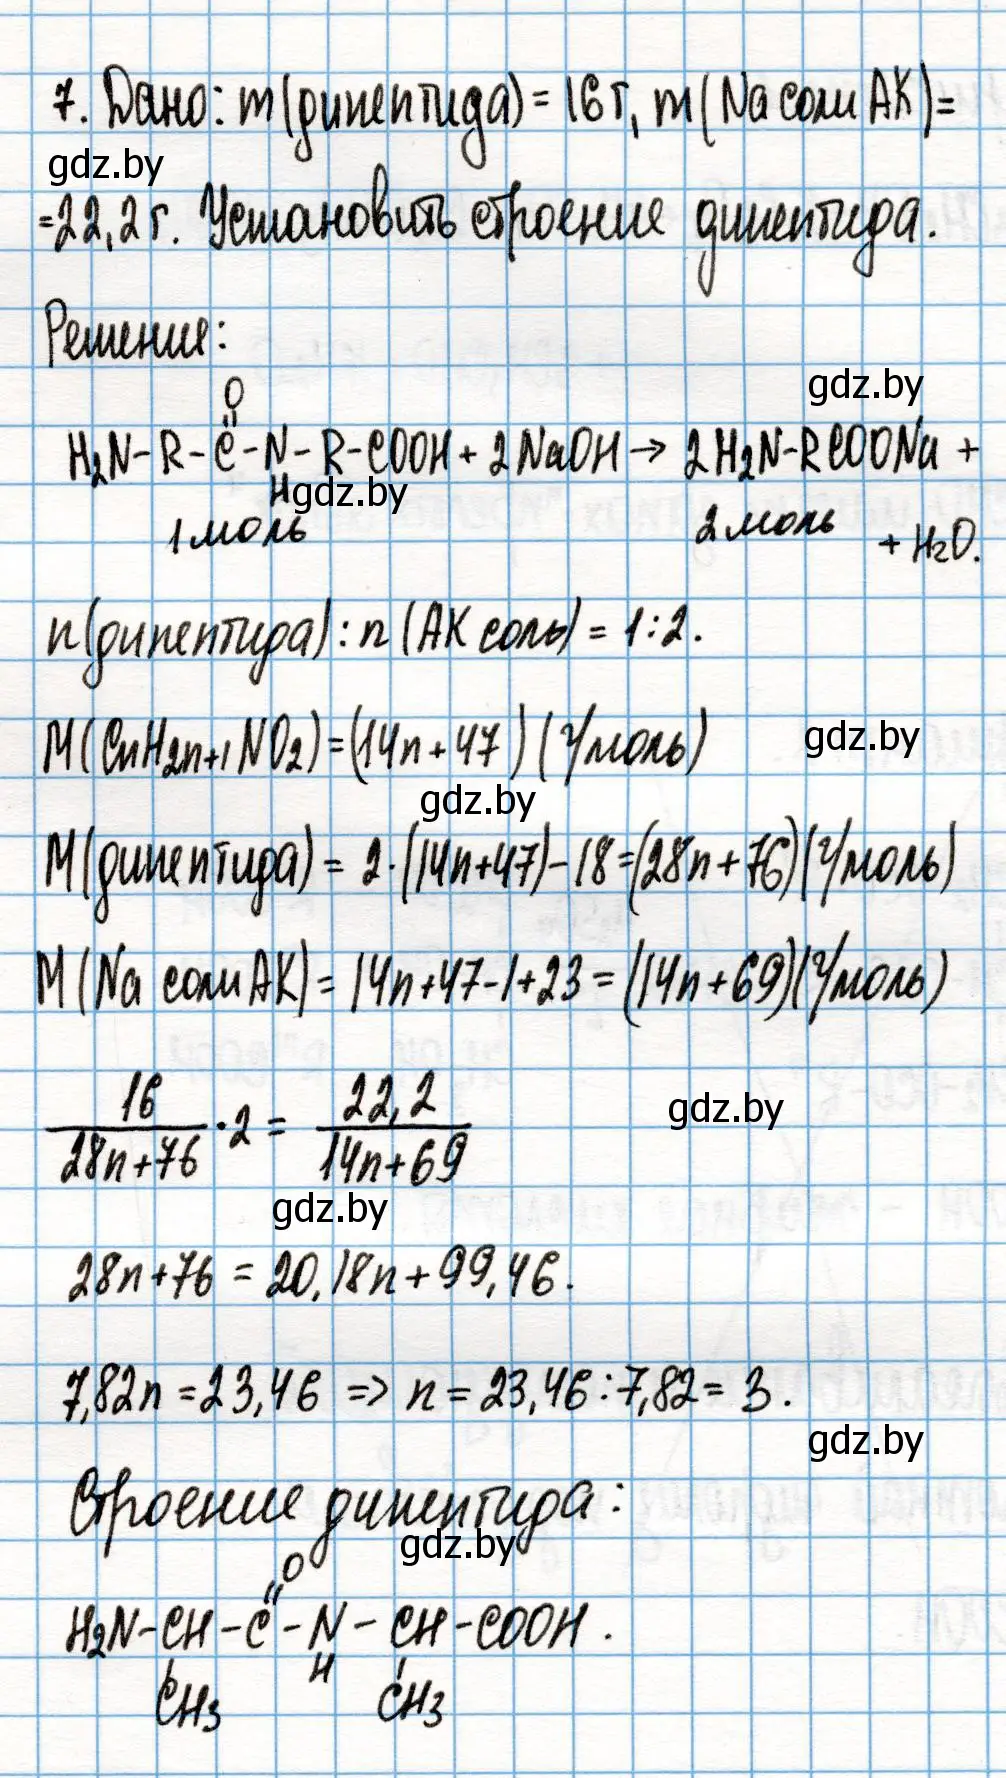 7. Дано: m(дипептида) = 16 г, m(Na соли АК) =
gdz.by
= 22,2 г. Установить строение дипептида.
Решение:
gdz.by
O
H₂N-R-C-N-R-COOH + 2NaOH → 2H₂N-RCOONa +
H
gdz.by
1 моль 2 моль + H₂O.
n(дипептида) : n(АК соль) = 1:2.
M(CnH2n+1NO2) = (14n+47) (г/моль)
gdz.by
gdz.by
M(дипептида) = 2·(14n+47)-18 = (28n+76)(г/моль)
M(Na соли АК) = 14n+47-1+23 = (14n+69)(г/моль)
16/(28n+76) · 2 = 22,2/(14n+69)
gdz.by
gdz.by
28n+76 = 20,18n+99,46.
7,82n = 23,46 => n = 23,46 : 7,82 = 3.
gdz.by
Строение дипептида:
gdz.by
O
H₂N-CH-C-N-CH-COOH.
H
CH₃ CH₃